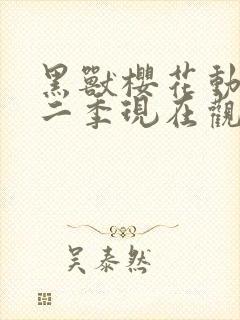 黑獸櫻花動
二季現在觀
吴泰然